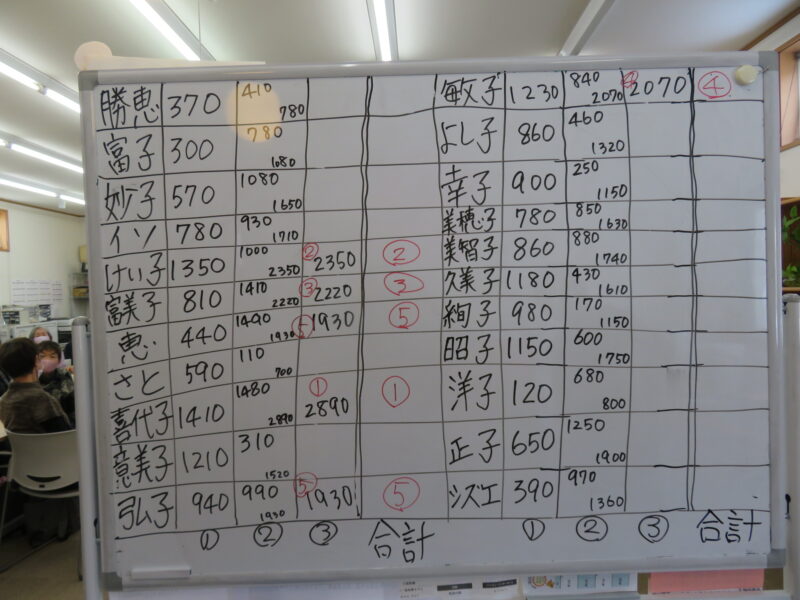 勝恵 370 410 780
富子 300 780 1080
妙子 570 1080 1650
イソ 780 930 1710
けい子 1350 1000 2350 ② 2350 ②
富美子 810 1410 2220 ③ 2220 ③
恵 440 1490 1930 ⑤ 1930 ⑤
さと 590 110 700
喜代子 1410 1480 2890 ① 2890 ①
意美子 1210 310 1520
弘子 940 990 1930 ⑤ 1930 ⑤
① ② ③ 合計
敏子 1230 840 2070 ④ 2070 ④
よし子 860 460 1320
幸子 900 250 1150
美穂子 780 850 1630
美智子 860 880 1740
久美子 1180 430 1610
絢子 980 170 1150
昭子 1150 600 1750
洋子 120 680 800
正子 650 1250 1900
シズエ 390 970 1360
① ② ③ 合計